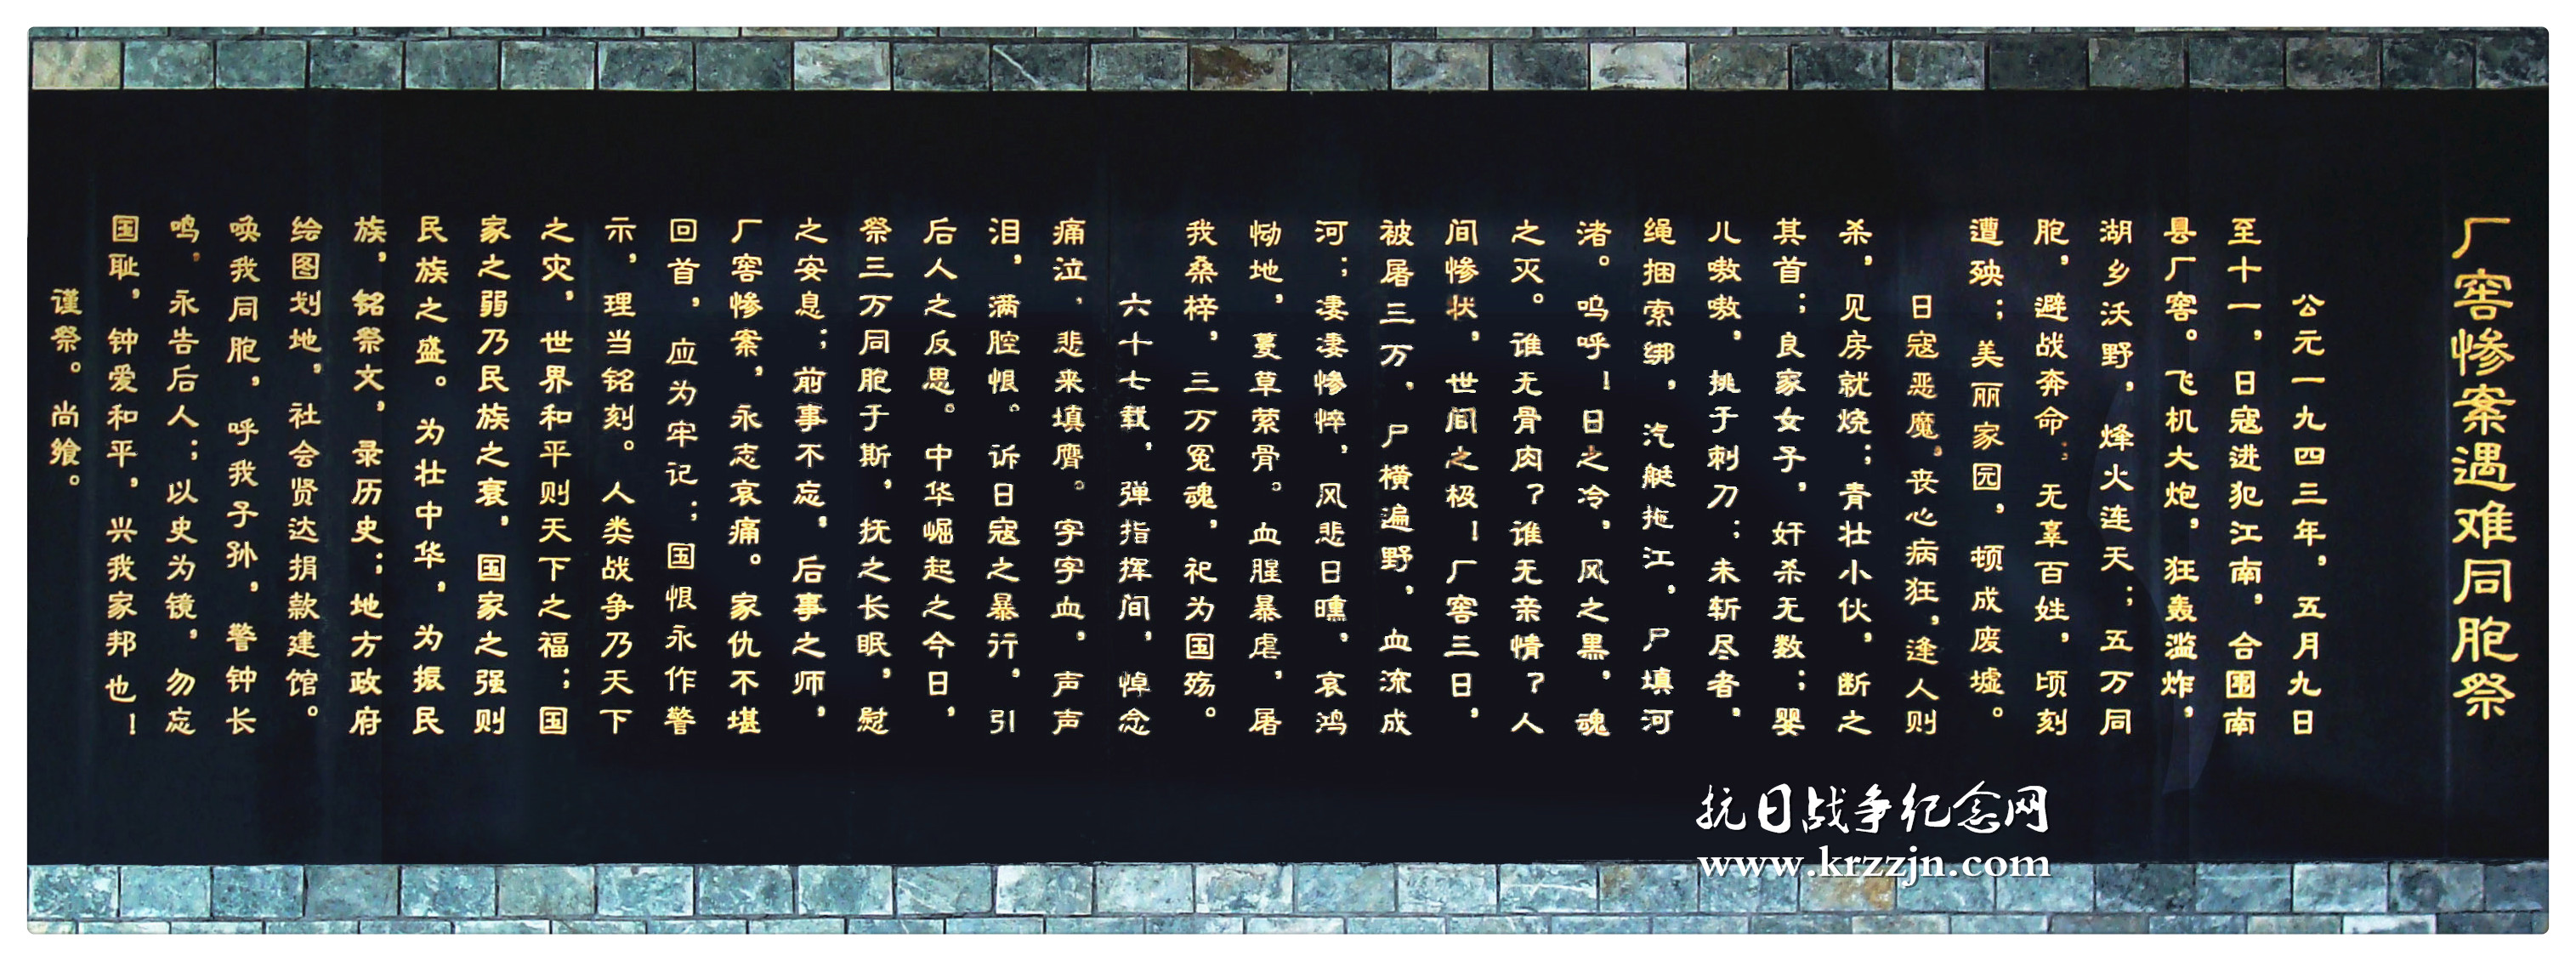 厂窖惨案遇难同胞祭
公元一九四三年，五月九日
至十一，日寇进犯江南，合围南
县厂窖。飞机大炮，狂轰滥炸，
湖乡沃野，烽火连天；五万同
胞，避战奔命；无辜百姓，顷刻
遭殃；美丽家园，顿成废墟。
日寇恶魔，丧心病狂，逢人则
杀，见房就烧；青壮小伙，断之
其首；良家女子，奸杀无数；婴
儿嗷嗷，挑于刺刀；未斩尽者，
绳捆索绑，汽艇拖江，尸填河
渚。呜呼！日之冷，风之黑，魂
之灭。谁无骨肉？谁无亲情？人
间惨状，世间之极！厂窖三日，
被屠三万，尸横遍野，血流成
河；凄凄惨悴，风悲日曛，哀鸿
恸地，蔓草萦骨。血腥暴虐，屠
我桑梓，三万冤魂，祀为国殇。
六十七载，弹指挥间，悼念
痛泣，悲来填膺。字字血，声声
泪，满腔恨。诉日寇之暴行，引
后人之反思。中华崛起之今日，
祭三万同胞于斯，抚之长眠，慰
之安息；前事不忘，后事之师，
厂窖惨案，永志哀痛。家仇不堪
回首，应为牢记；国恨永作警
示，理当铭刻。人类战争乃天下
之灾，世界和平则天下之福；国
家之弱乃民族之衰，国家之强则
民族之盛。为壮中华，为振民
族，铭祭文，录历史；地方政府
绘图划地，社会贤达捐款建馆。
唤我同胞，呼我子孙，警钟长
鸣，永告后人；以史为镜，勿忘
国耻，钟爱和平，兴我家邦也！
谨祭。尚飨。
抗日战争纪念网
www.krzzjn.com